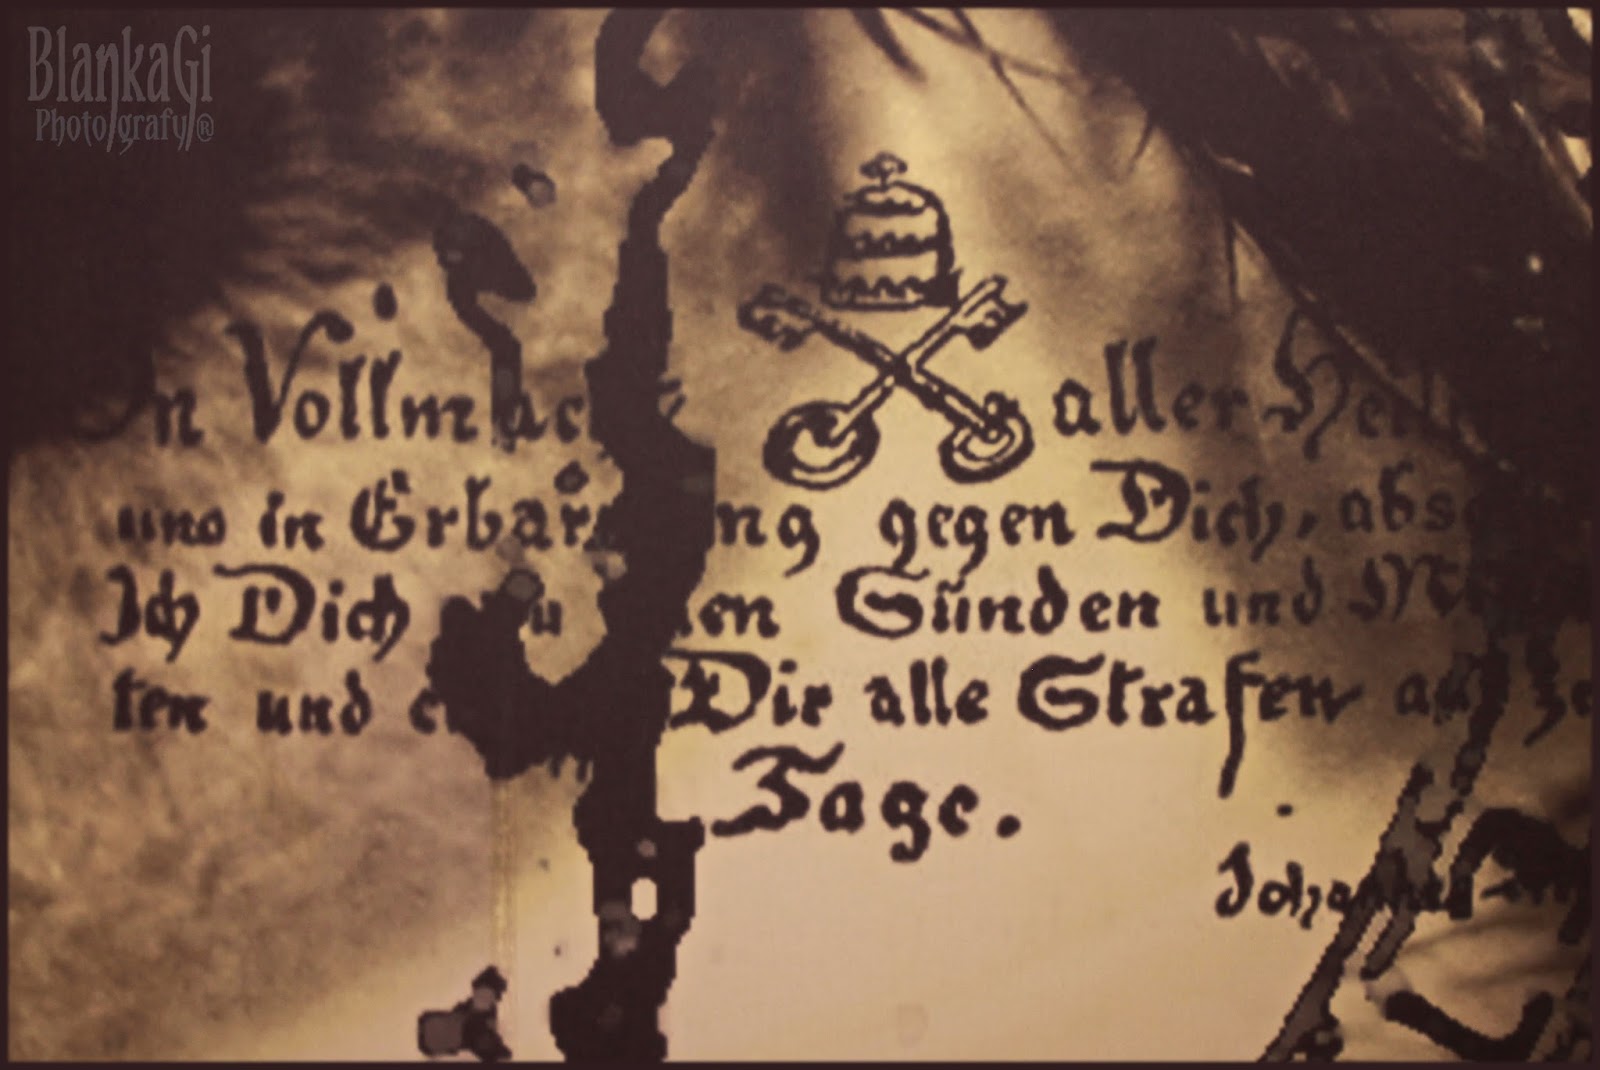 BlankaGi
Photografy®
In Vollmacht aller
und in Erbarmung gegen Dich,
Ich Dich Sünden und
ten und Dir alle Strafen
Tage.
Johannes